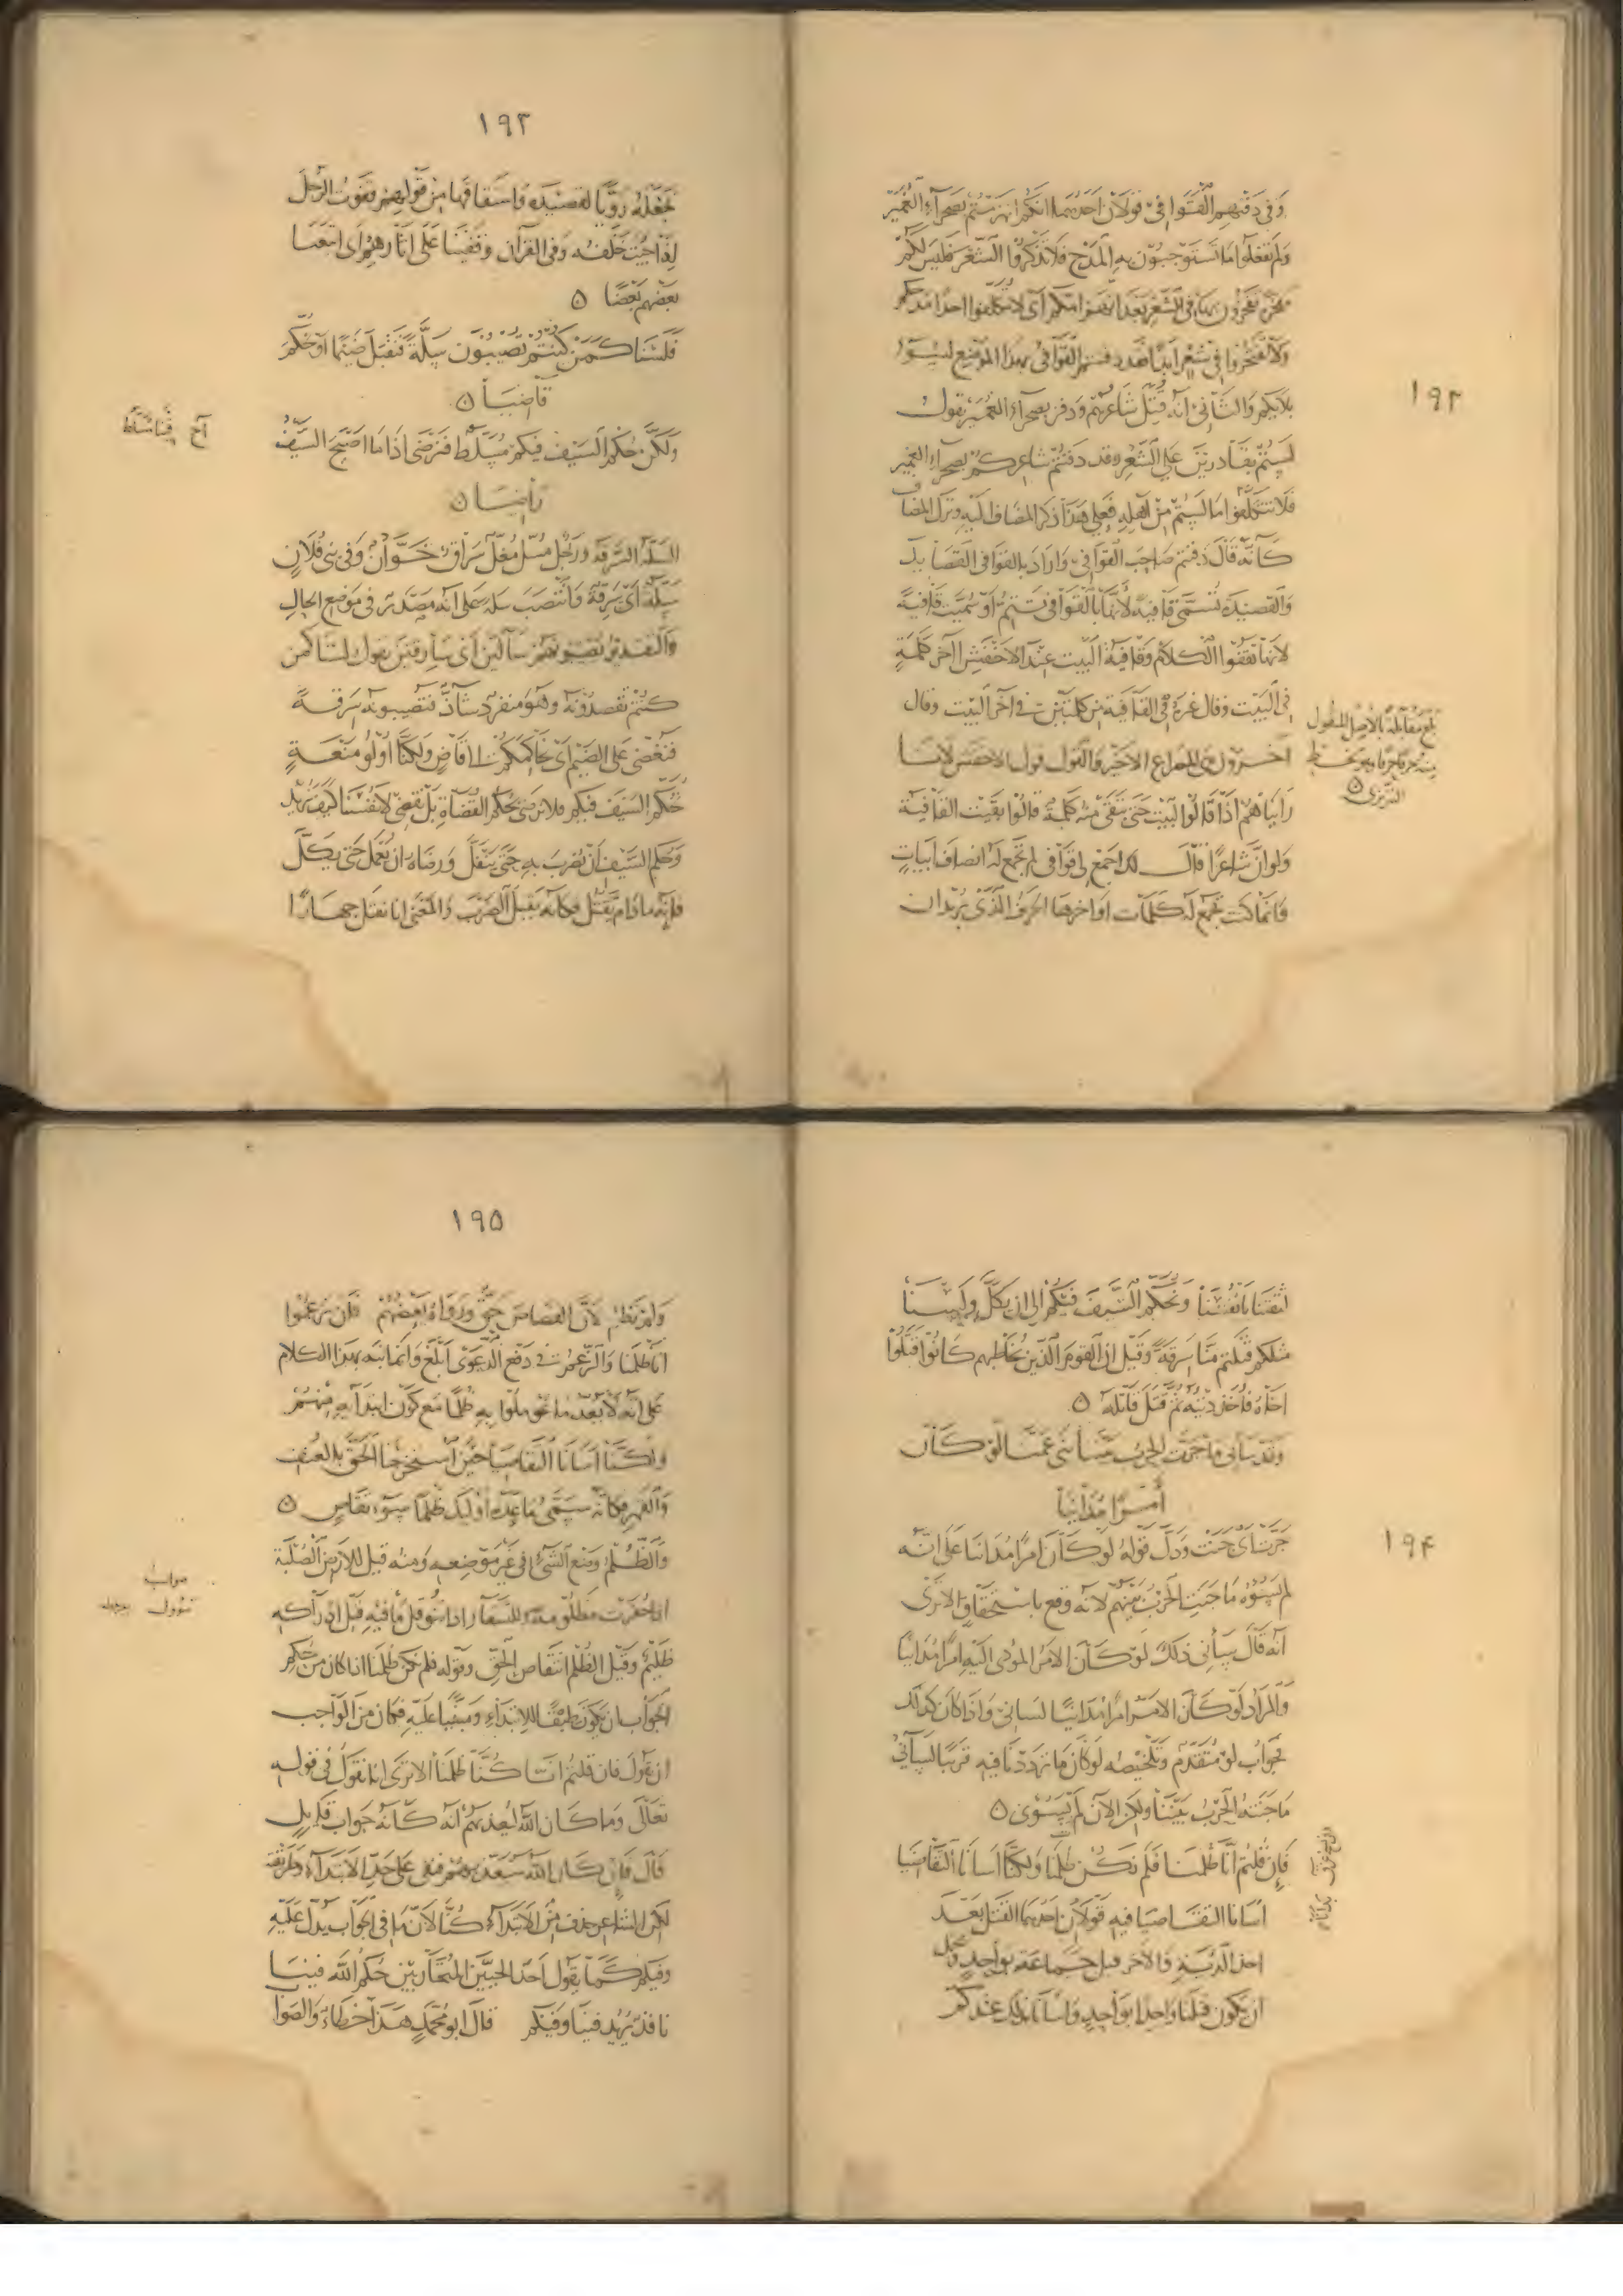 ١٩٢
وفي دفنهم القوافي قولان احدهما انكم انهزمتم بصحراء الغمير
ولم تفعلوا ما تستوجبون به المدح فلا تذكروا الشعر فليس لكم
تفخرون به في الشعر بعد انهزامكم اي لا تتكلفوا احدا مدحكم
ولا تفتخروا في شعر ابدا فقد دفنتم القوافي بهذا الموضع لسوء
بلائكم والثاني انه قتل شاعرهم ودفن بصحراء الغمير يقول
لستم بقادرين على الشعر وقد دفنتم شاعركم بصحراء الغمير
فلا تتكلفوا ما لستم من اهله فعلى هذا ذكر المضاف اليه وترك المضاف
كأنه قال دفنتم صاحب القوافي واراد بالقوافي القصايد
والقصيدة تسمى قافية لأنها بالقوافي تتم او سميت قافية
لانها تقفوا الكلام وقافية البيت عند الاخفش آخر كلمة
في البيت وقال غيره في القافية من كلمتين في آخر البيت وقال
آخرون هي المصراع الاخير والقول قول الاخفش لانا
رأيناهم اذا قالوا البيت حتى تبقى منه كلمة قالوا بقيت القافية
ولو ان شاعرا قال لك اجمع لي قوافي لم تجمع له انصاف ابيات
وانما كنت تجمع له كلمات اواخرها الحرف الذي يريد ان
بلغ مقابلة بالاصل المنقول
منه حرفا حرفا وهو بخط
التبريزي
١٩٣
تجعله رويا لقصيدة واشتقاقها من قولهم قفوت الرجل
اذا جئت خلفه وفي القرآن وقفينا على اثارهم اي اتبعنا
بعضهم بعضا ٥
فلسنا كمن كنتم تصيبون سلة فنقبل ضيما او نحكم
قاضيا ٥
ولكن حكم السيف فيكم مسلط فنرضى اذا ما اصبح السيف
راضيا ٥
السلة السرقة ورجل مسل مغل سراق خوان وفي بني فلان
سلة اي سرقة وانتصب سلة على انه مصدر في موضع الحال
والتقدير تصيبونهم سالين اي سارقين يقول لسنا كمن
كنتم تقصدونه وهو منفرد شاذ فتصيبونه سرقة
فنغضي على الضيم اي نحاكمكم الى قاض ولكنا اولو منعة
نحكم السيف فيكم فلا نرضى بحكم القضاة بل نقضي لانفسنا كيف نريد
وحكم السيف ان يضرب به حتى ينفل ورضاه ان يعمل حتى يكل
فانه ما دام يقتل فكأنه يقبل الضرب والمعنى انا نقتل جهارا
١٩٤
ثقتنا بانفسنا ونحكم السيف فيكم الى ان يكل ولسنا
مثلكم قتلتم منا سرقة وقيل ان القوم الذين يخاطبهم كانوا قتلوا
اخاه فاخذ ديته ثم قتل قاتله ٥
وقد ساءني ما جرت الحرب بيننا بني عمنا لو كان
أمرا مدانيا
جرت اي جنت ودل قوله لو كان امرا مدانيا على انه
لم يسؤه ما جنت الحرب بينهم لانه وقع باستحقاق الا ترى
انه قال ساءني ذلك لو كان الامر المؤدي اليه امرا مدانيا
والمراد لو كان الامر امرا مدانيا لساءني واذا كان كذلك
فجواب لو متقدم وتلخيصه لو كان ما ترددنا فيه قريبا لساءني
ما جنته الحرب بيننا ولكن الآن لم يسؤني ٥
فإن قلتم انا ظلمنا فلم نكن ظلمنا ولكنا اسأنا التقاضيا
اسأنا التقاضيا فيه قولان احدهما القتل بعد
اخذ الدية والآخر قتل جماعة بواحد
ان يكون قتلنا واحدا بواحد واسأنا بذلك عندكم
١٩٥
ولم نظلم لأن القصاص حق ورواه بعضهم فان تزعموا
انا ظلمنا والزعم في دفع الدعوى ابلغ وانما نبه بهذا الكلام
على انه لا يعد ما عوملوا به ظلما مع كون ابتدائه منهم
ولكننا اسأنا التقاضيا حين استخرجنا الحق بالعنف
والقهر فكأنه سمى ما عده اوليك ظلما سوء تقاض ٥
والظلم وضع الشيء في غير موضعه ومنه قيل للارض الصلبة
اذا حفرت مظلومة وللسقاء اذا تنوول ما فيه قبل ادراكه
ظليم وقيل الظلم انتقاص الحق وقوله فلم نكن ظلمنا انا كان من حكم
الجواب ان يكون طبقا للابتداء ومبنيا عليه فكان من الواجب
ان يقول فان قلتم انا كنا ظلمنا الا ترى انا نقول في قوله
تعالى وما كان الله ليعذبهم انه كأنه جواب قايل
قال فان كان الله سيعذبهم فنفى على حد الابتداء وطريقته
لكن الشاعر حذف من الابتداء كنا لان ما في الجواب يدل عليه
وفيكم كما يقول احد الحيين المتحاربين حكم الله فينا
نافذ يريد فينا وفيكم قال ابو محمد هذا خطاء والصوا
صوابه
تنوول